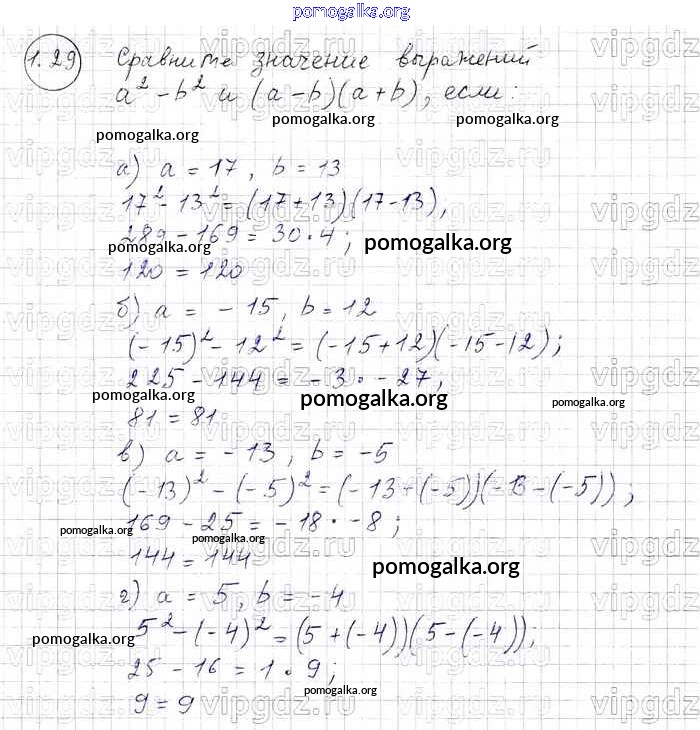 pomogalka.org
1.29 Сравните значение выражений
a² - b² и (a-b)(a+b), если:
pomogalka.org pomogalka.org pomogalka.org
а) a = 17, b = 13
17² - 13² = (17+13)(17-13),
289 - 169 = 30·4;
pomogalka.org pomogalka.org
120 = 120
б) a = -15, b = 12
(-15)² - 12² = (-15+12)(-15-12);
225 - 144 = -3 · -27,
pomogalka.org pomogalka.org pomogalka.org
81 = 81
в) a = -13, b = -5
(-13)² - (-5)² = (-13+(-5))(-13-(-5));
169 - 25 = -18 · -8;
pomogalka.org pomogalka.org
144 = 144
pomogalka.org
г) a = 5, b = -4
5² - (-4)² = (5+(-4))(5-(-4));
pomogalka.org
25 - 16 = 1·9;
9 = 9
pomogalka.org